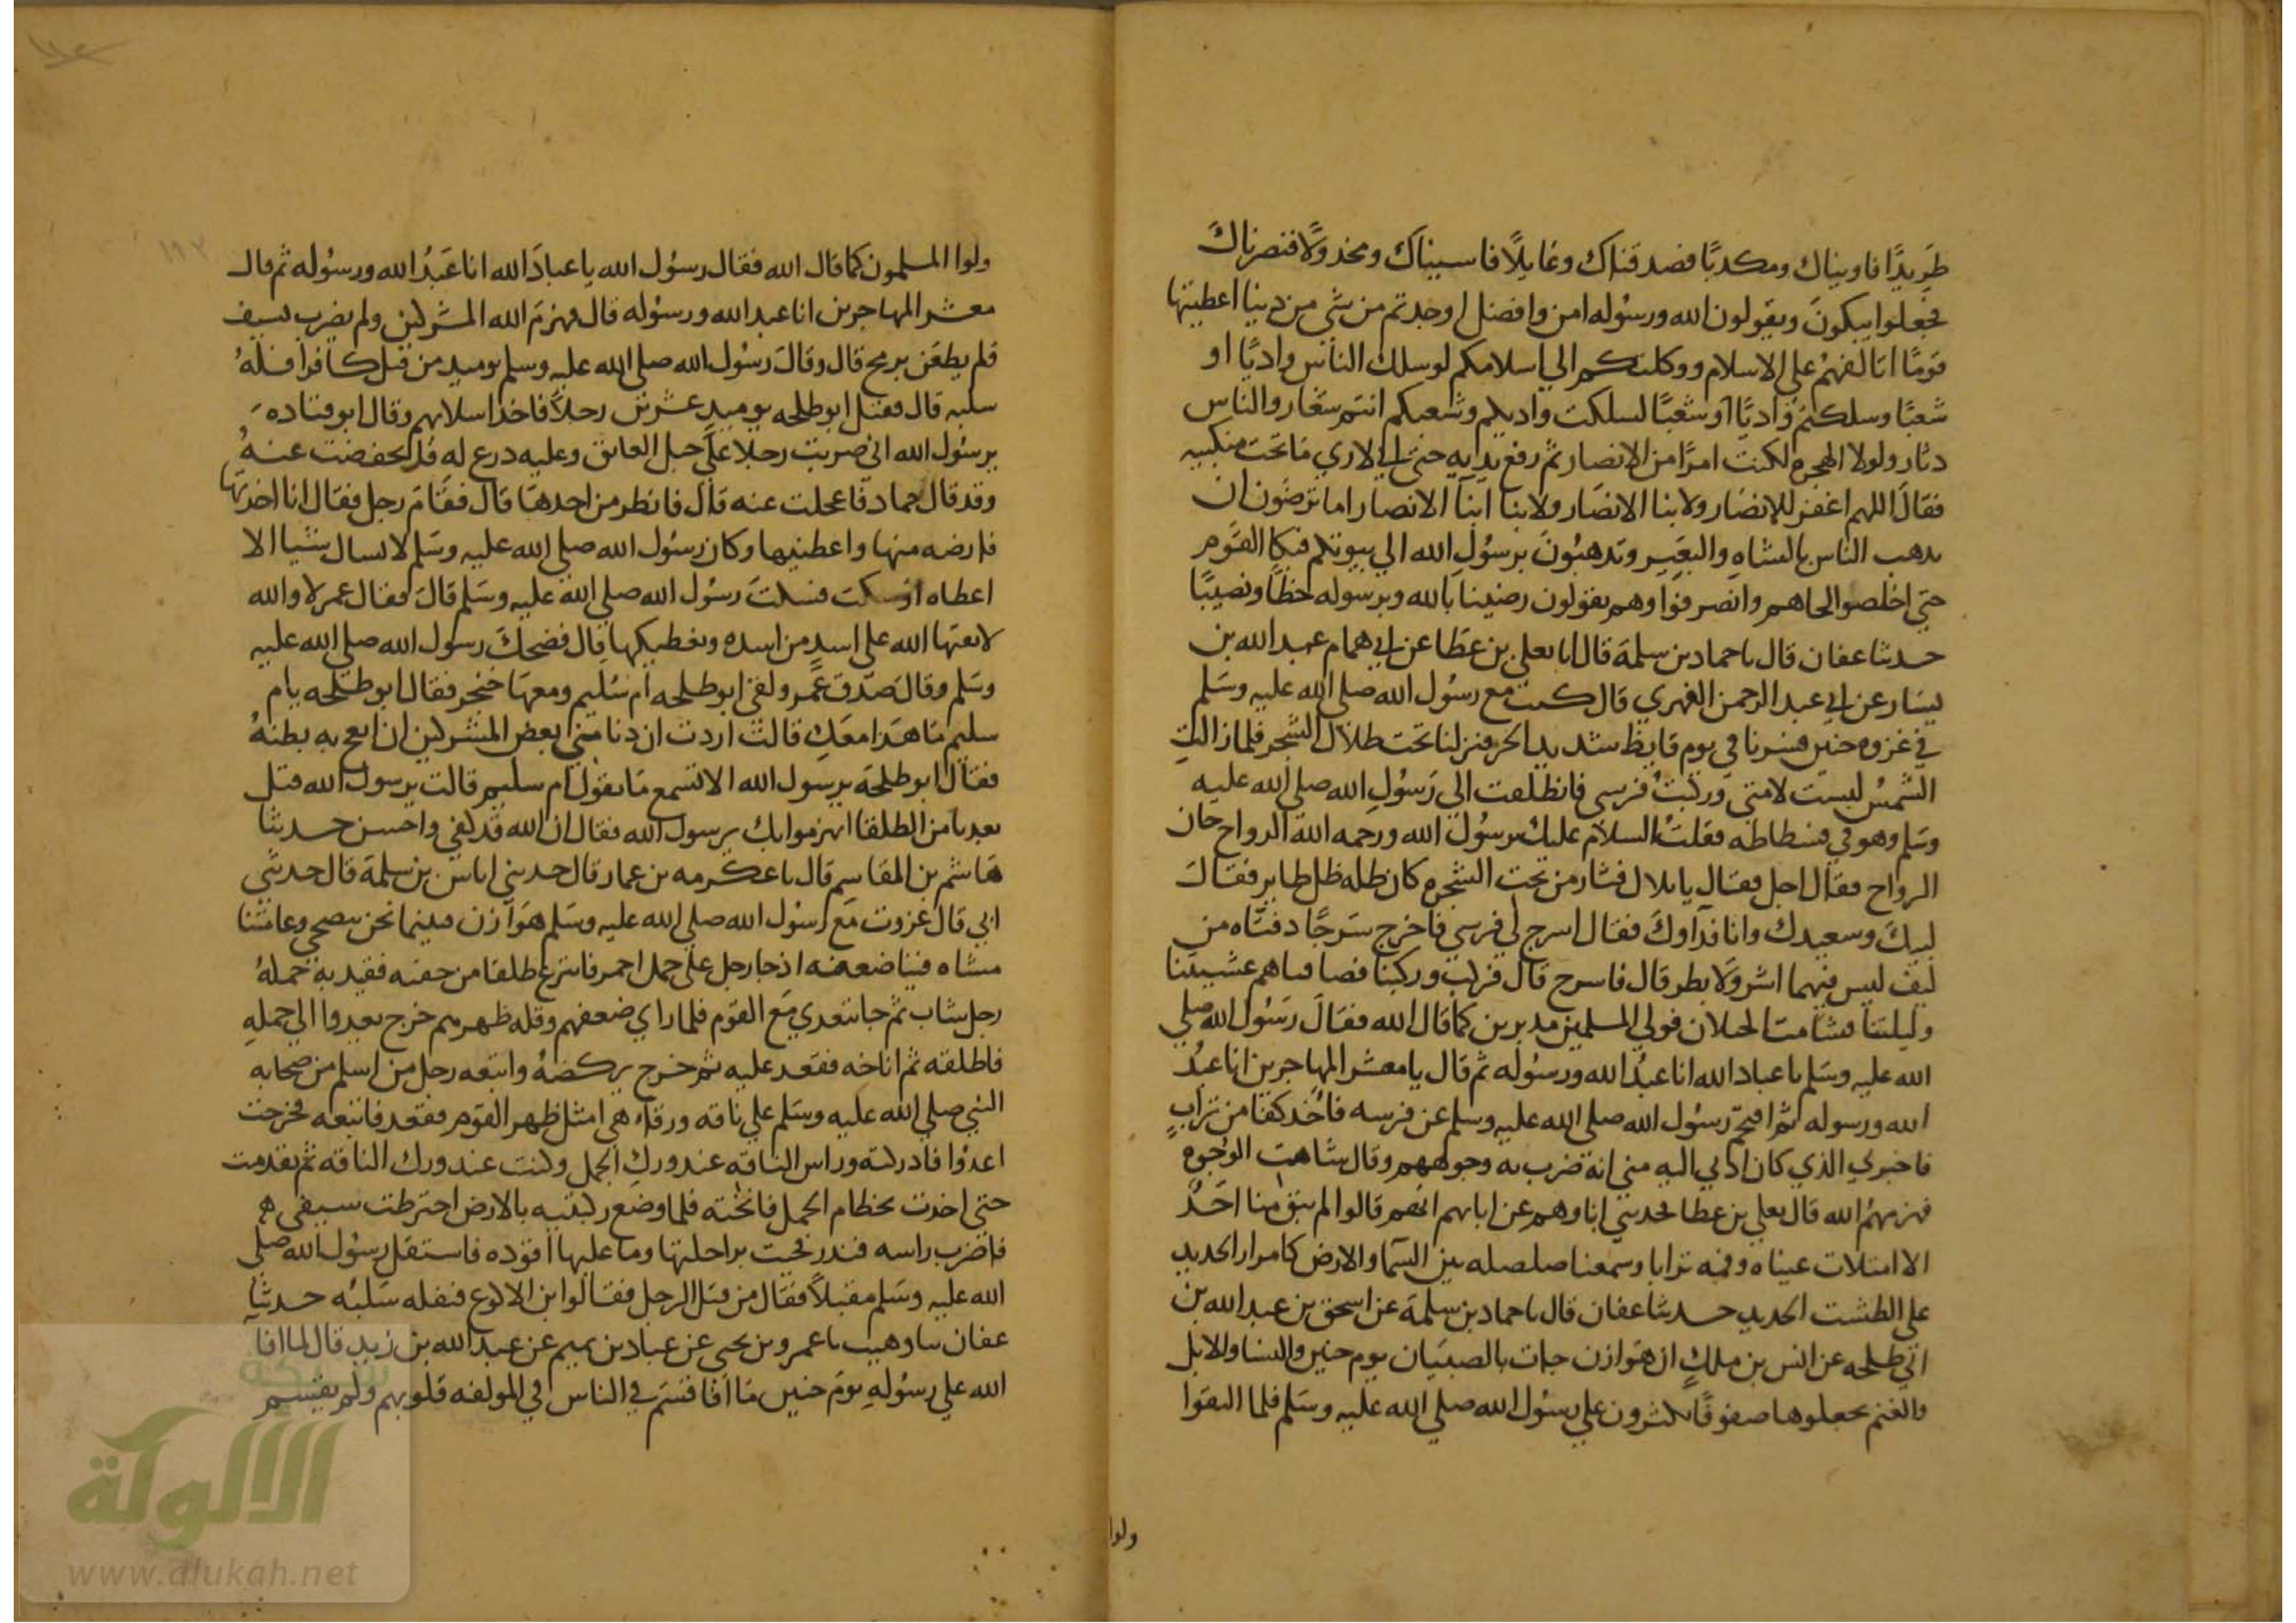 طريدًا فاويناك ومكذبًا فصدقناك وعايلًا فاسيناك ومخذولًا فنصرناك
فجعلوا يبكون ويقولون الله ورسوله امن وافضل اوجدتم من شي من دنيا اعطيتها
قومًا اتالفهم على الاسلام ووكلتكم الي اسلامكم لو سلك الناس واديًا او
شعبًا وسلكتم واديًا او شعبًا لسلكت واديكم وشعبكم انتم شعار والناس
دثار ولولا الهجرة لكنت امرًا من الانصار ثم رفع يديه حتى اني لاري ما تحت منكبيه
فقال اللهم اغفر للانصار ولابنا الانصار ولابنا ابنا الانصار اما ترضون ان
يذهب الناس بالشاه والبعير وتذهبون برسول الله الي بيوتكم فبكا القوم
حتى اخضلوا لحاهم وانصرفوا وهم يقولون رضينا بالله وبرسوله حظًا ونصيبًا
حدثنا عفان قال نا حماد بن سلمة قال انا يعلى بن عطا عن ابي همام عبد الله بن
يسار عن ابي عبد الرحمن الفهري قال كنت مع رسول الله صلى الله عليه وسلم
في غزوه حنين فسرنا في يوم قايظ شديد الحر فنزلنا تحت ظلال الشجر فلما زالت
الشمس لبست لامتي وركبت فرسي فانطلقت الى رسول الله صلى الله عليه
وسلم وهو في فسطاطه فقلت السلام عليك برسول الله ورحمه الله الرواح حان
الرواح فقال اجل فقال يا بلال فثار من تحت الشجره كان ظله ظل طاير فقال
لبيك وسعيدك وانا فداوك فقال اسرج لي فرسي فاخرج سرجًا دفتاه من
ليف ليس فيهما اشر ولا بطر قال فاسرج قال فركب وركبنا فصاففناهم عشيتنا
وليلتنا فتشامت الخيلان فولي المسلمين مدبرين كما قال الله فقال رسول الله صلي
الله عليه وسلم يا عباد الله انا عبد الله ورسوله ثم قال يا معشر المهاجرين انا عبد
الله ورسوله ثم اقتحم رسول الله صلى الله عليه وسلم عن فرسه فاخذ كفا من تراب
فاخبرني الذي كان ادني اليه مني انه ضرب به وجوههم وقال شاهت الوجوه
فهزمهم الله قال يعلي بن عطا فحدثني ابناوهم عن ابايهم انهم قالوا لم يبق منا احد
الا امتلات عيناه وفمه ترابا وسمعنا صلصله بين السما والارض كامرار الحديد
علي الطشت الحديد حدثنا عفان قال نا حماد بن سلمة عن اسحق بن عبد الله بن
ابي طلحه عن انس بن ملك ان هوازن جات بالصبيان يوم حنين والنسا والابل
والغنم فجعلوها صفوفًا يكثرون علي رسول الله صلي الله عليه وسلم فلما التقوا
ولوا
ولوا المسلمون كما قال الله فقال رسول الله يا عباد الله انا عبد الله ورسوله ثم قال
معشر المهاجرين انا عبد الله ورسوله قال فهزم الله المشركين ولم يضرب بسيف
فلم يطعن برمح قال وقال رسول الله صلى الله عليه وسلم يوميد من قتل كافرا فله
سلبه قال فقتل ابو طلحه يوميد عشرين رجلًا فاخذ اسلابهم وقال ابو قتاده
برسول الله اني ضربت رجلا على حبل العاتق وعليه درع له فاجهضت عنه
وقد قال حماد فاعجلت عنه قال فانظر من اخذها قال فقام رجل فقال انا اخذتها
فارضه منها واعطنيها وكان رسول الله صلى الله عليه وسلم لا يسال شيا الا
اعطاه او سكت فسكت رسول الله صلي الله عليه وسلم قال فقال عمر لا والله
لا يفتها الله على اسد من اسده ويعطيكها قال فضحك رسول الله صلى الله عليه
وسلم وقال صدق عمر ولقي ابو طلحه ام سليم ومعها خنجر فقال ابو طلحه يا ام
سليم ما هذا معك قالت اردت ان دنا مني بعض المشركين ان ابعج به بطنه
فقال ابو طلحة برسول الله الا تسمع ما تقول ام سليم قالت برسول الله قتل
بعدنا من الطلقا انهزموا بك برسول الله فقال ان الله قد كفي واحسن حدثنا
هاشم بن القاسم قال نا عكرمه بن عمار قال حدثني اياس بن سلمة قال حدثني
ابي قال غزوت مع رسول الله صلى الله عليه وسلم هوازن فبينما نحن نتضحي وعامتنا
مشاه فينا ضعفه اذ جا رجل على جمل احمر فانتزع طلقا من حقبه فقيد به جمله
رجل شاب ثم جا يتغدي مع القوم فلما راي ضعفهم وقله ظهرهم خرج يعدوا الي جمله
فاطلقه ثم اناخه فقعد عليه ثم خرج يركضه واتبعه رجل من اسلم من صحابه
النبي صلي الله عليه وسلم علي ناقه ورقاء هي امثل ظهر القوم فقعد فاتبعه فخرجت
اعدوا فادركته وراس الناقه عند ورك الجمل وكنت عند ورك الناقه ثم تقدمت
حتى اخذت بخطام الجمل فانخته فلما وضع ركبتيه بالارض اخترطت سيفي
فاضرب راسه فندر فجيت براحلتها وما عليها اقوده فاستقبل رسول الله صلي
الله عليه وسلم مقبلًا فقال من قتل الرجل فقالوا ابن الاكوع فنفله سلبه حدثنا
عفان نا وهيب نا عمرو بن يحيي عن عباد بن تميم عن عبد الله بن زيد قال لما افا
الله علي رسوله يوم حنين ما افا قسم في الناس في المولفه قلوبهم ولم يقسم
١٩٢
الألوكة
www.alukah.net